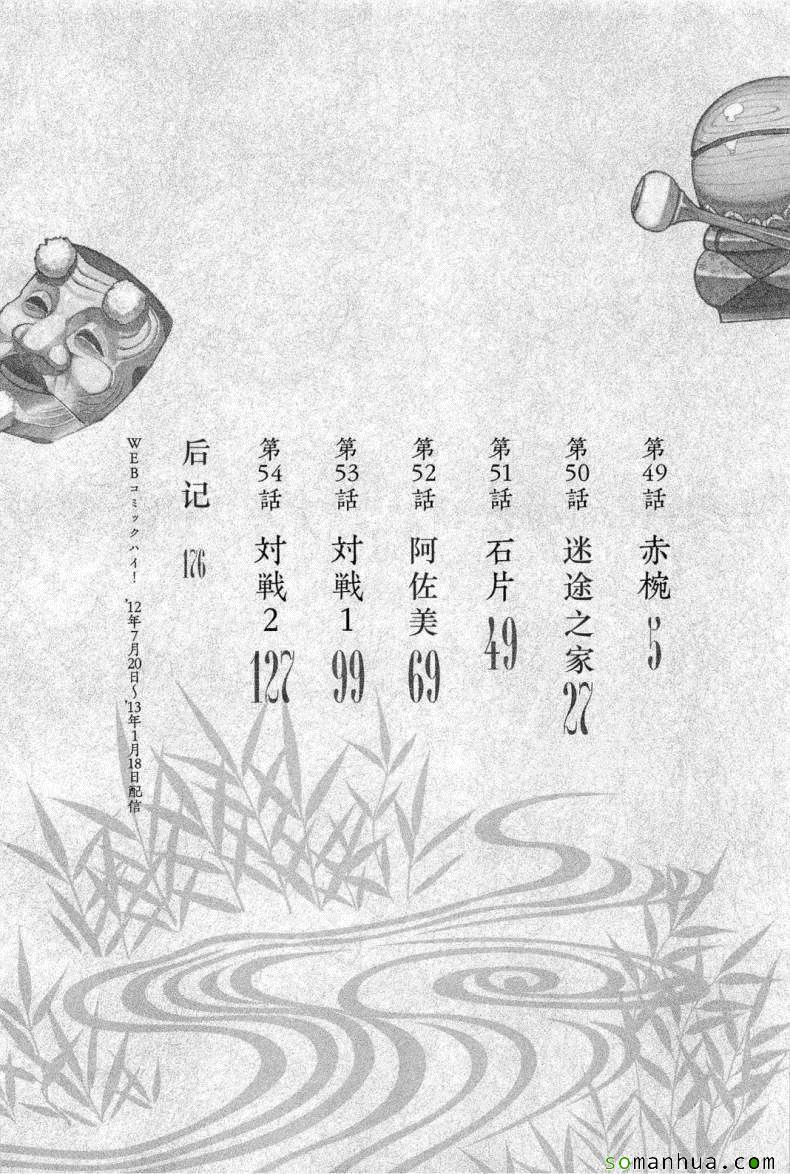 第49話 赤椀 5
第50話 迷途之家 27
第51話 石片 49
第52話 阿佐美 69
第53話 対戦1 99
第54話 対戦2 127
后记 176
WEBコミックハイ! '12年7月20日~'13年1月18日配信
somanhua.com